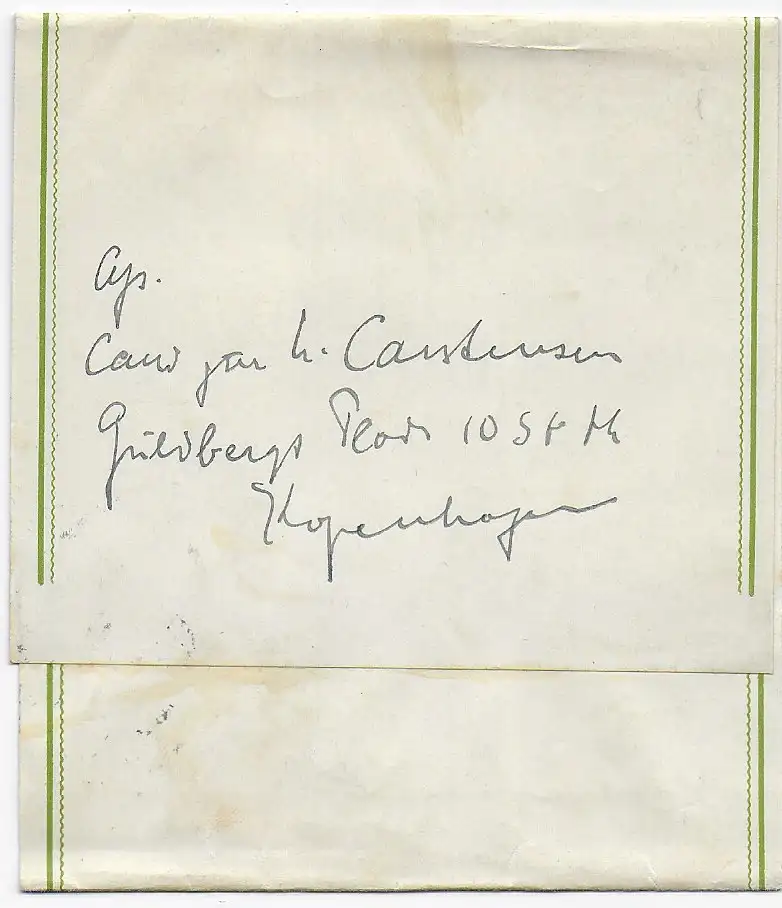 Cand jur h. Carstensen
Guldbergs Plads 10 St th
Kopenhagen